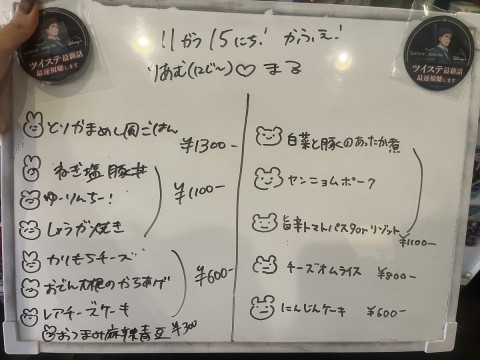 ツイステ最新話
最速視聴します
Disney+
ツイステ最新話
最速視聴します
Disney+
11がつ15にち! かふぇ!
りあむ(12じ〜)♡まる
とりかまめし風ごはん ¥1300-
ねぎ塩豚丼
ゆーりんちー! ¥1100-
しょうが焼き
かりもちチーズ
おでん大根のからあげ ¥600-
レアチーズケーキ
おつまみ麻辣青豆 ¥300
白菜と豚くのあったか煮
ヤンニョムポーク
旨辛トマトパスタorリゾット ¥1100-
チーズオムライス ¥800-
にんじんケーキ ¥600-